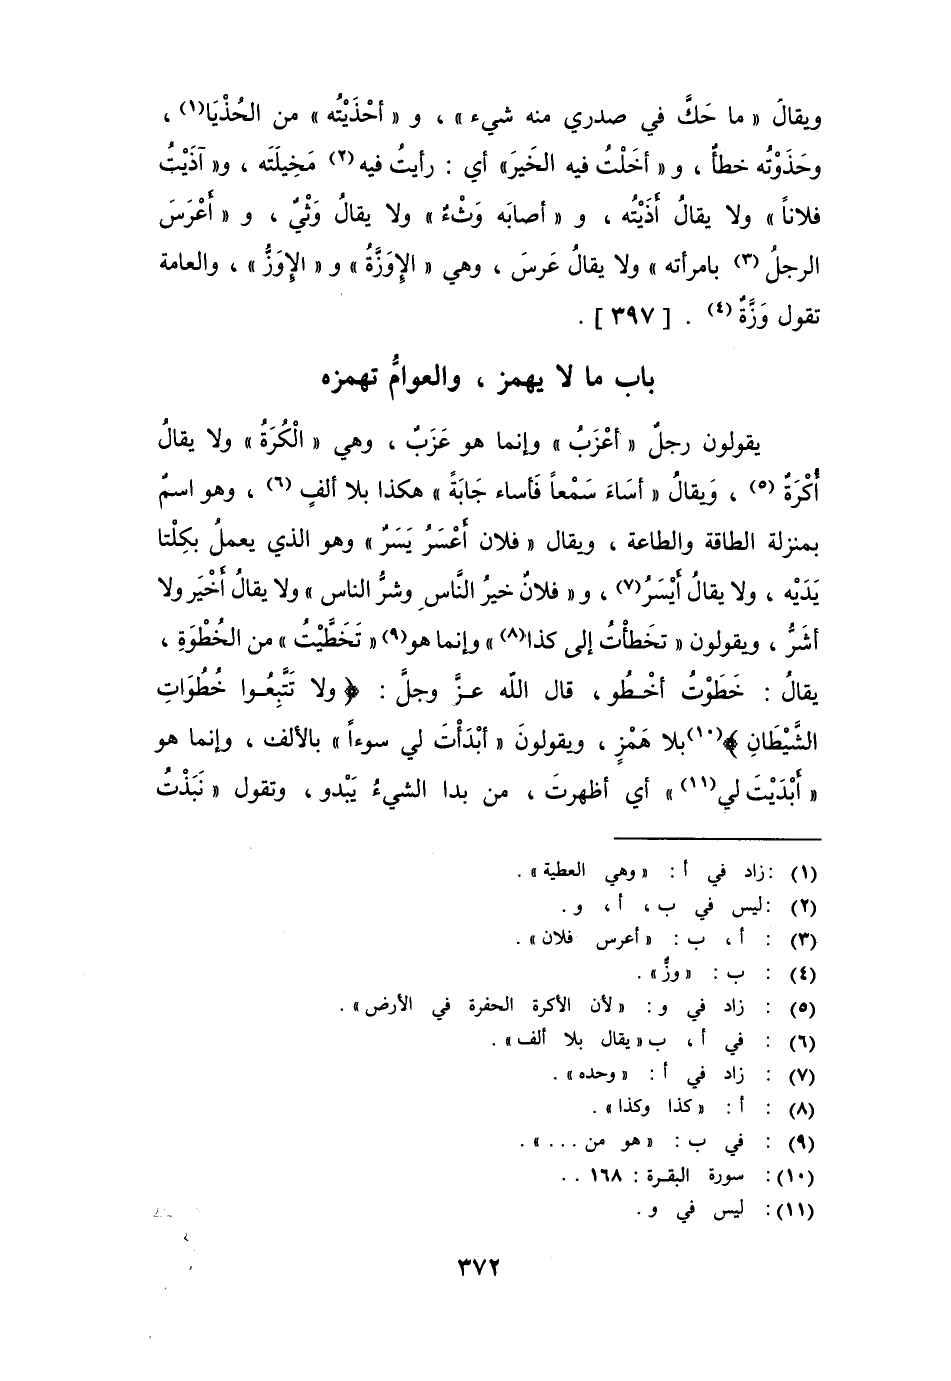 ويقالَ « ما حَكَّ في صدري منه شيء » ، و « أحْذَيْتُه » من الحُذْيَا(١) ،
وحَذَوْتُه خطأٌ ، و « أخَلْتُ فيه الخَيرَ» أي : رأيتُ فيه (٢) مَخِيلَتَه ، و« آذَيْتُ
فلاناً » ولا يقالُ أَذَيْتُه ، و « أصابَه وَثْءٌ » ولا يقالُ وَثْيٌ ، و « أَعْرَسَ
الرجلُ (٣) بامرأته » ولا يقالُ عَرسَ ، وهي « الإوَزَّةُ » و « الإوَزُّ » ، والعامة
تقول وَزَّةٌ (٤) . [ ٣٩٧ ] .
باب ما لا يهمز ، والعوامُّ تهمزه
يقولون رجلٌ « أعْزَبُ » وإنما هو عَزَبٌ ، وهي « الْكُرَةُ » ولا يقالُ
أُكْرَةٌ (٥) ، وَيقالُ « أسَاءَ سَمْعاً فَأساء جَابَةً » هكذا بلا ألفٍ (٦) ، وهو اسمٌ
بمنزلة الطاقة والطاعة ، ويقال « فلان أَعْسَرُ يَسَرٌ » وهو الذي يعملُ بكِلْتا
يَدَيْه ، ولا يقالُ أَيْسَرُ(٧) ، و « فلانٌ خيرُ النَّاسِ وشرُّ الناس » ولا يقالُ أَخْيَر ولا
أشَرُّ ، ويقولون « تخَطأْتُ إلى كذا(٨) » وإنما هو(٩) « تَخَطَّيْتُ » من الخُطْوَةِ ،
يقالُ : خَطَوْتُ أخْـطُو ، قال اللّه عـزَّ وجلَّ : ﴿ ولا تَتَّبِعُـوا خُطُوَاتِ
الشَّيْطَانِ ﴾(١٠) بلا هَمْزٍ ، ويقولونَ « أبْدَأْتَ لي سوءاً » بالألف ، وإنما هو
« أَبْدَيْتَ لي(١١) » أي أظهرتَ ، من بدا الشيءُ يَبْدو ، وتقول « نَبَذْتُ
(١) :زاد في أ : «وهي العطية» .
(٢) :ليس في ب، أ، و.
(٣) : أ ، ب : «أعرس فلان» .
(٤) : ب : «وزٌّ» .
(٥) : زاد في و : «لأن الأكرة الحفرة في الأرض» .
(٦) : في أ ، ب «يقال بلا ألف» .
(٧) : زاد في أ : «وحده» .
(٨) : أ : «كذا وكذا» .
(٩) : في ب : «هو من . . . » .
(١٠): سورة البقـرة : ١٦٨ . .
(١١): ليس في و .
٣٧٢